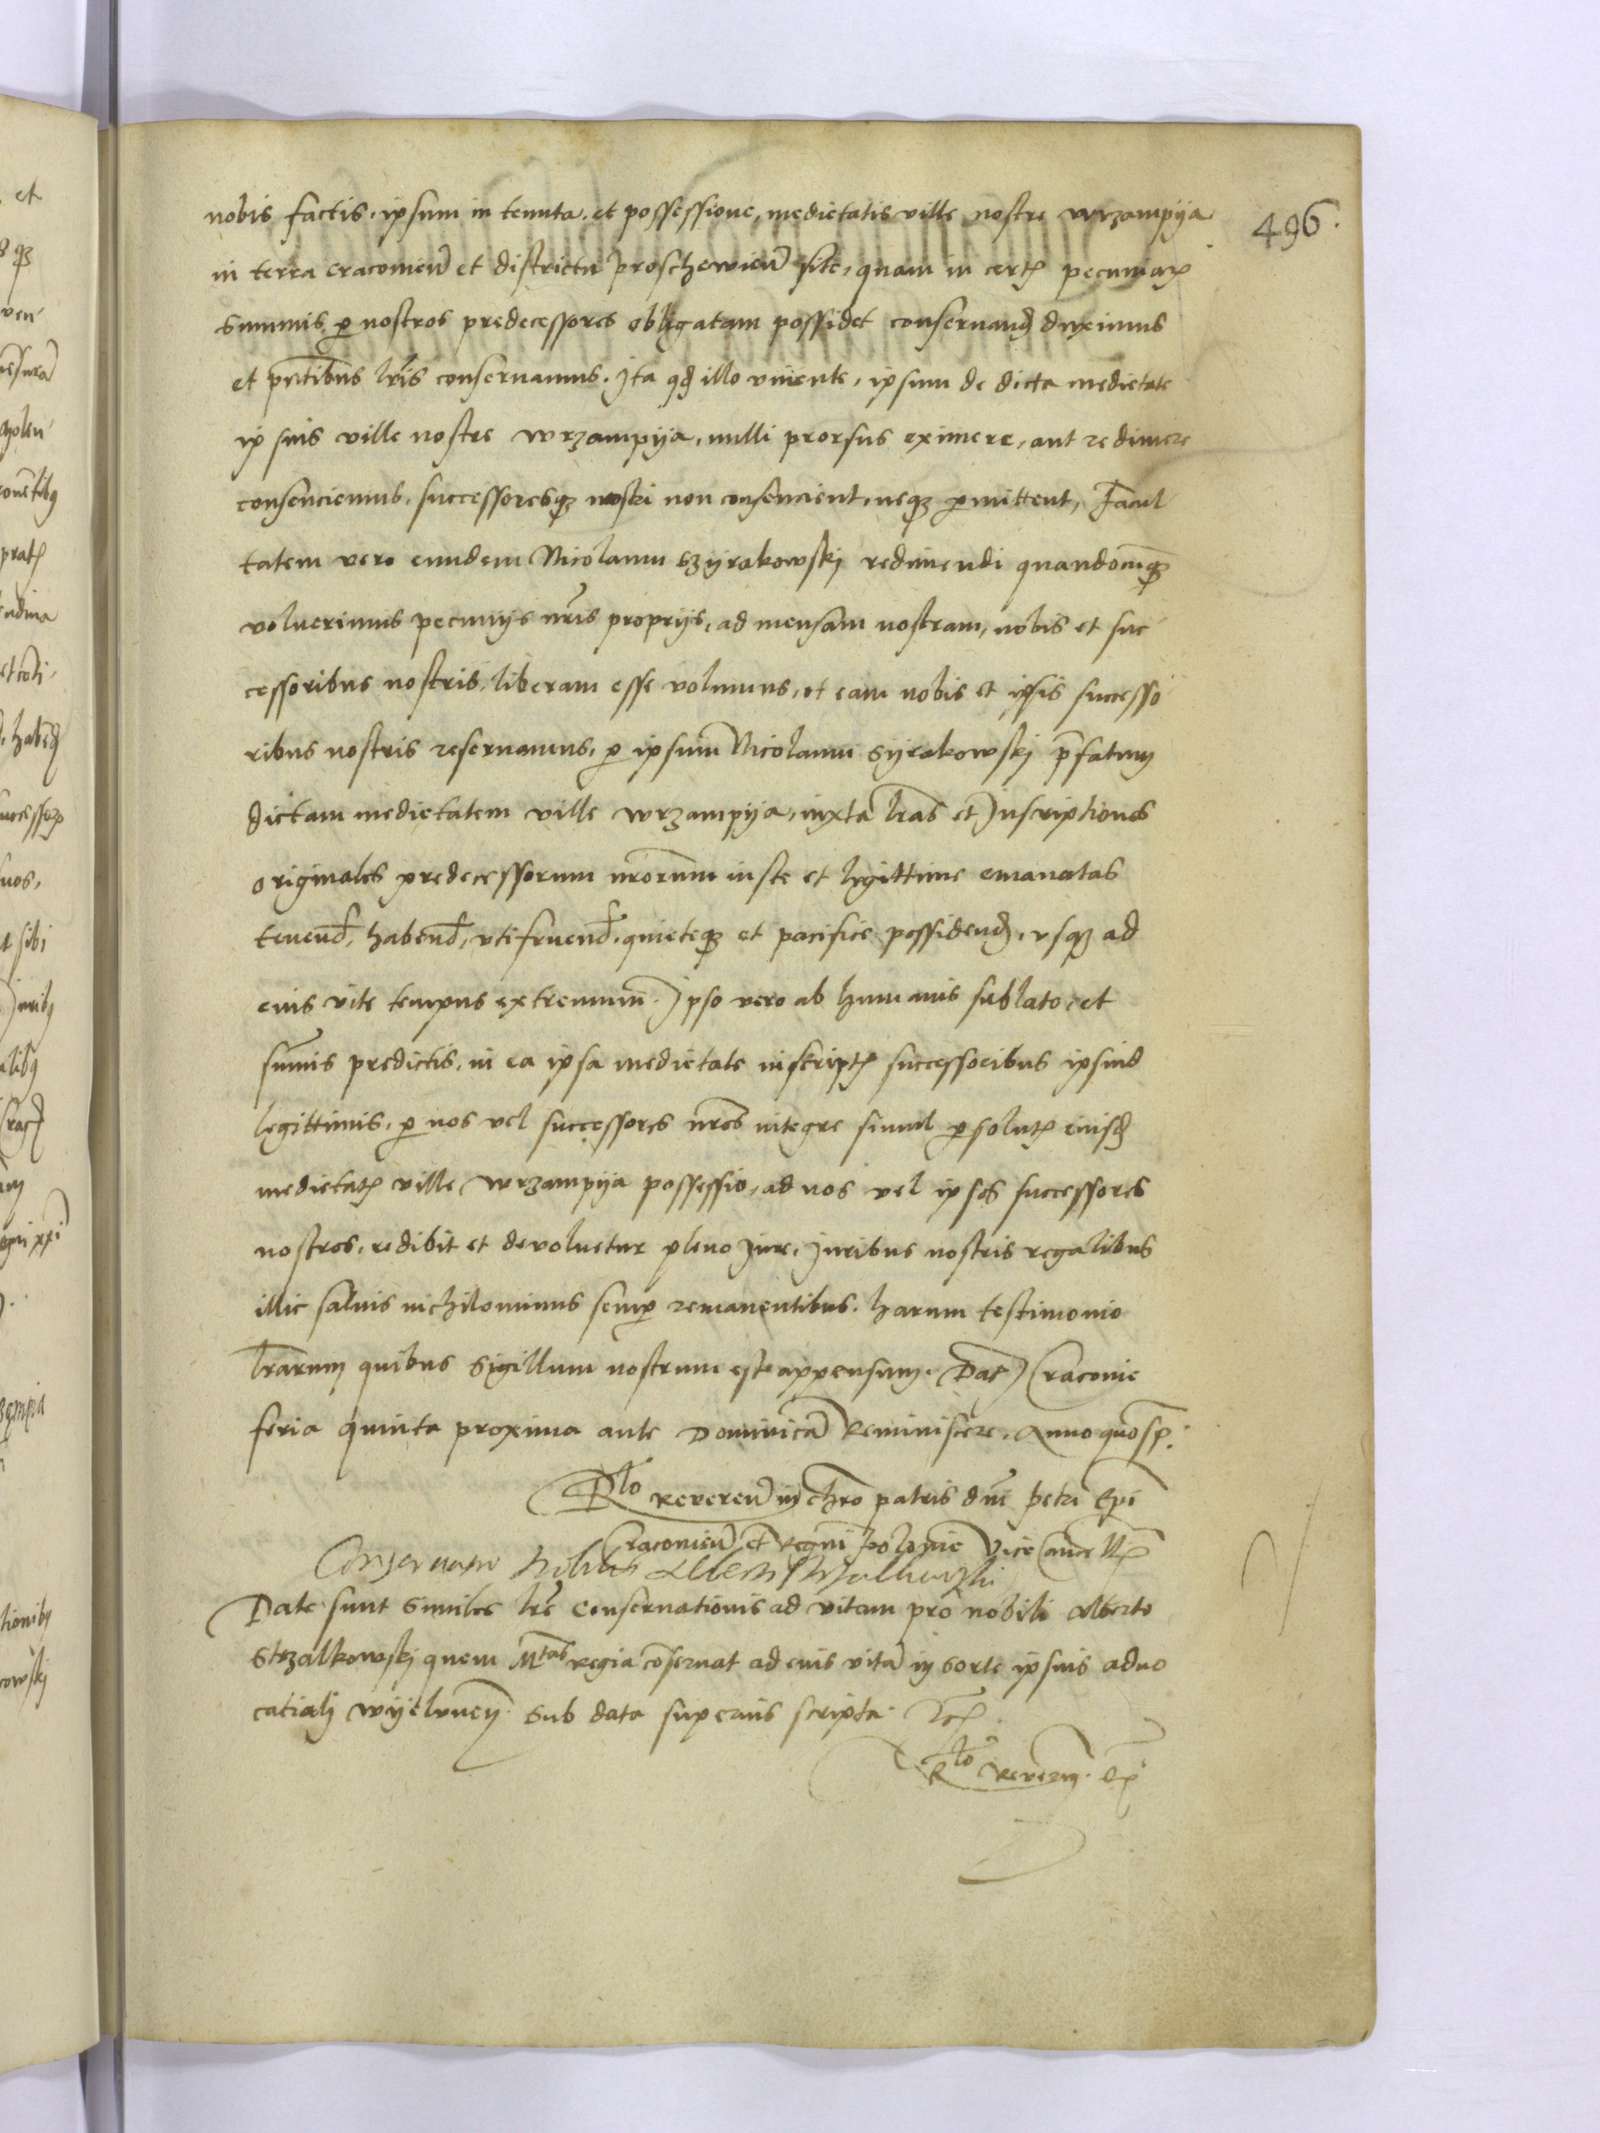 496.
nobis factis, ipsum in tenuta et possessione, medietatis ville nostre wrzampija
in terra cracouien et districtu proschowien site, quam in cert pecuniar
summis, p nostros predecessores obligatam possidet conseruand duximus
et pntibus lris conseruamus. Ita qd illo viuente, ipsum de dicta medietate
ipsius ville nostre wrzampija, nulli prorsus eximere, aut redimere
consenciemus, successoresq nostri non consencient, neq pmittent, Facul
tatem vero eundem Nicolaum Szyrakowskj redimendi quandocunq
voluerimus pecunijs nris proprijs, ad mensam nostram, nobis et suc
cessoribus nostris, liberam esse volumus, et eam nobis et ipsis successo
ribus nostris reseruamus, p ipsum Nicolaum Syrakowskj pfatum
dictam medietatem ville wrzampija, iuxta lras et Inscriptiones
originales predecessorum nrorum iuste et legittime emanatas
tenend, habend, vtifruend, quieteq et pacifice possidend, vsq ad
eius vite tempus extremum. Ipso vero ab humanis sublato, et
sumis predictis, in ea ipsa medietate inscript successoribus ipsius
legittimis, p nos vel successores nros integre simul psolut eiusd
medietat ville wrzampija possessio, ad nos vel ipsos successores
nostros, redibit et deuoluetur pleno Jure, Juribus nostris regalibus
illic saluis nichilominus semp remanentibus. harum testimonio
lrarum quibus Sigillum nostrum est appensum. Dat Cracouie
feria quinta proxima ante Dominica Reminiscere, Anno quo sp.
Rlo Reueren in chro patris dni petri Epi
Cracouien et Regni polonie Vice cancell
Conseruatio Nobilis Alberti Strzalkowski
Date sunt similes lre conseruationis ad vitam pro nobili Alberto
Strzalkowskj quem Mtas regia coseruat ad eius vita in sorte ipsius aduo
catialj wyelunen. Sub data superius scripta.
Rlo Reueren.